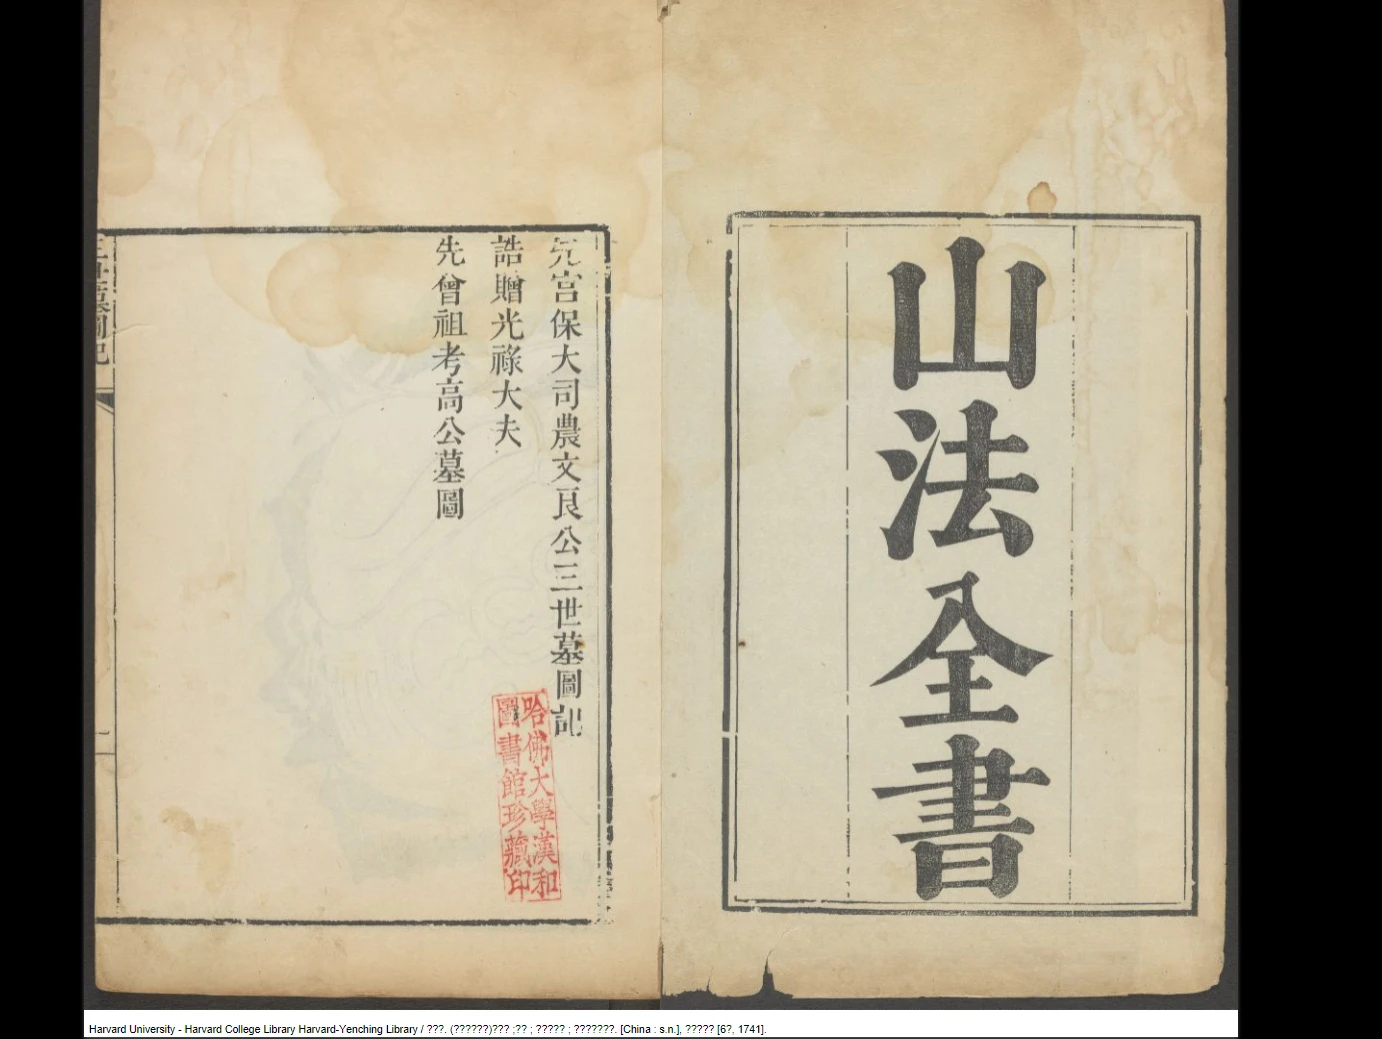 山法全書
宫保大司農文良公三世墓圖記
誥贈光祿大夫
先曾祖考高公墓圖
哈佛大學漢和
圖書館珍藏印
三世墓圖記
Harvard University - Harvard College Library Harvard-Yenching Library / ???. (??????)??? ;?? ; ????? ; ???????. [China : s.n.], ????? [6?, 1741].